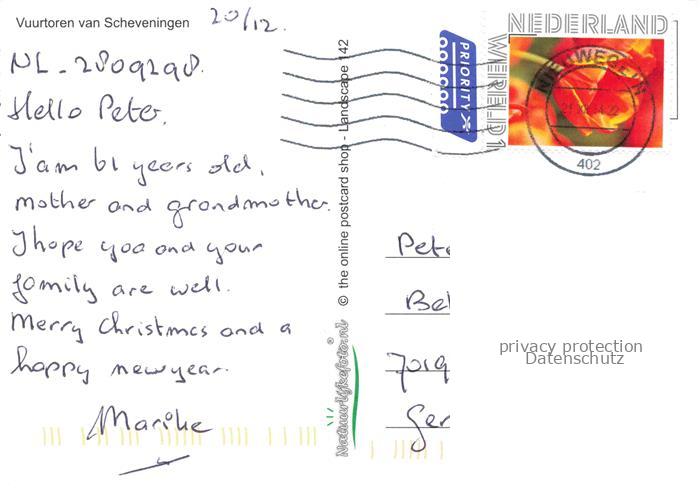 Vuurtoren van Scheveningen
20/12.
NL-2809298.
Hello Peter,
I'am 61 years old,
mother and grandmother.
I hope you and your
family are well.
Merry Christmas and a
happy newyear.
Marike
© the online postcard shop - Landscape 142
Natuurlijkefoto.nl
PRIORITY
NEDERLAND
WERELD 1
NIEUWEGEIN
402
Pete
Bel
Ger
privacy protection
Datenschutz